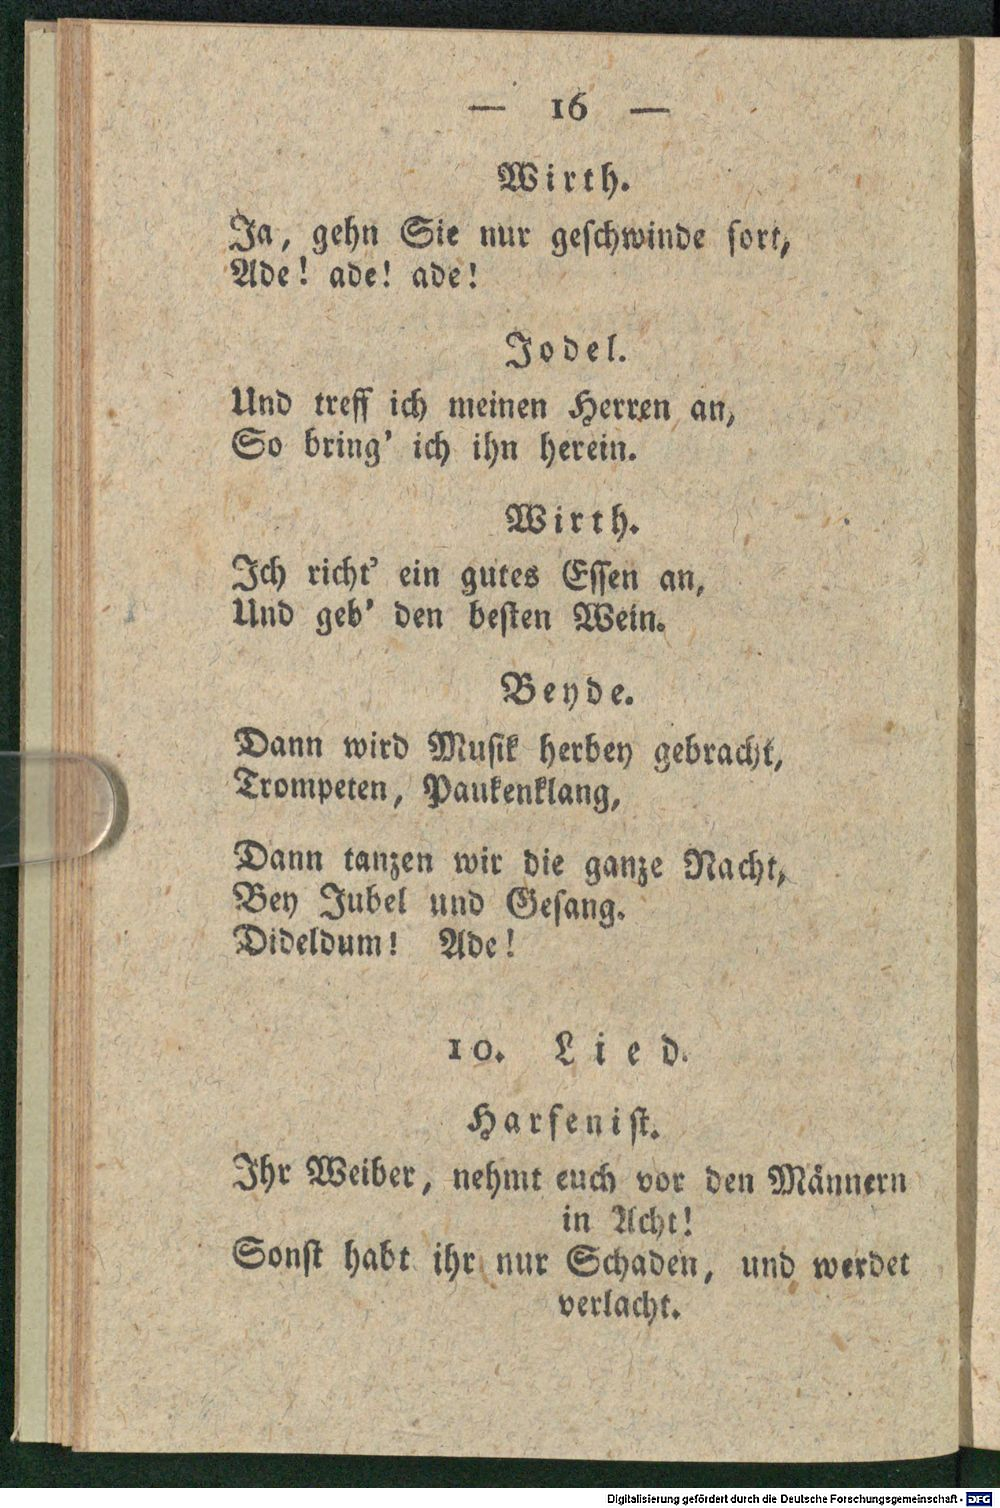 — 16 —
Wirth.
Ja, gehn Sie nur geschwinde fort,
Ade! ade! ade!
Jodel.
Und treff ich meinen Herren an,
So bring' ich ihn herein.
Wirth.
Ich richt' ein gutes Essen an,
Und geb' den besten Wein.
Beyde.
Dann wird Musik herbey gebracht,
Trompeten, Paukenklang,
Dann tanzen wir die ganze Nacht,
Bey Jubel und Gesang.
Dideldum! Ade!
10. Lied.
Harfenist.
Ihr Weiber, nehmt euch vor den Männern
in Acht!
Sonst habt ihr nur Schaden, und werdet
verlacht.
Digitalisierung gefördert durch die Deutsche Forschungsgemeinschaft - DFG